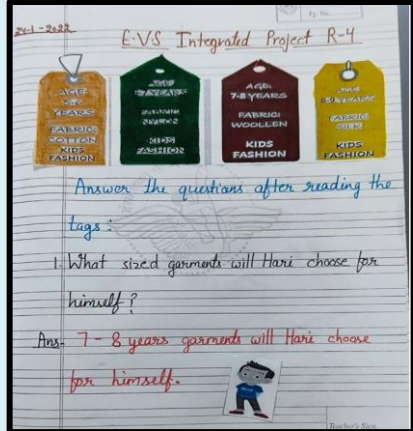 24-1-2022
E.V.S Integrated Project R-4
AGE:
5-6
YEARS
FABRIC:
COTTON
KIDS
FASHION
AGE:
6-7 YEARS
FABRIC:
NYLON
KIDS
FASHION
AGE:
7-8 YEARS
FABRIC:
WOOLLEN
KIDS
FASHION
AGE:
8-9 YEARS
FABRIC:
SILK
KIDS
FASHION
Answer the questions after reading the
tags :
1. What sized garments will Hari choose for
himself ?
Ans- 7 - 8 years garments will Hari choose
for himself.
Teacher's Sign.